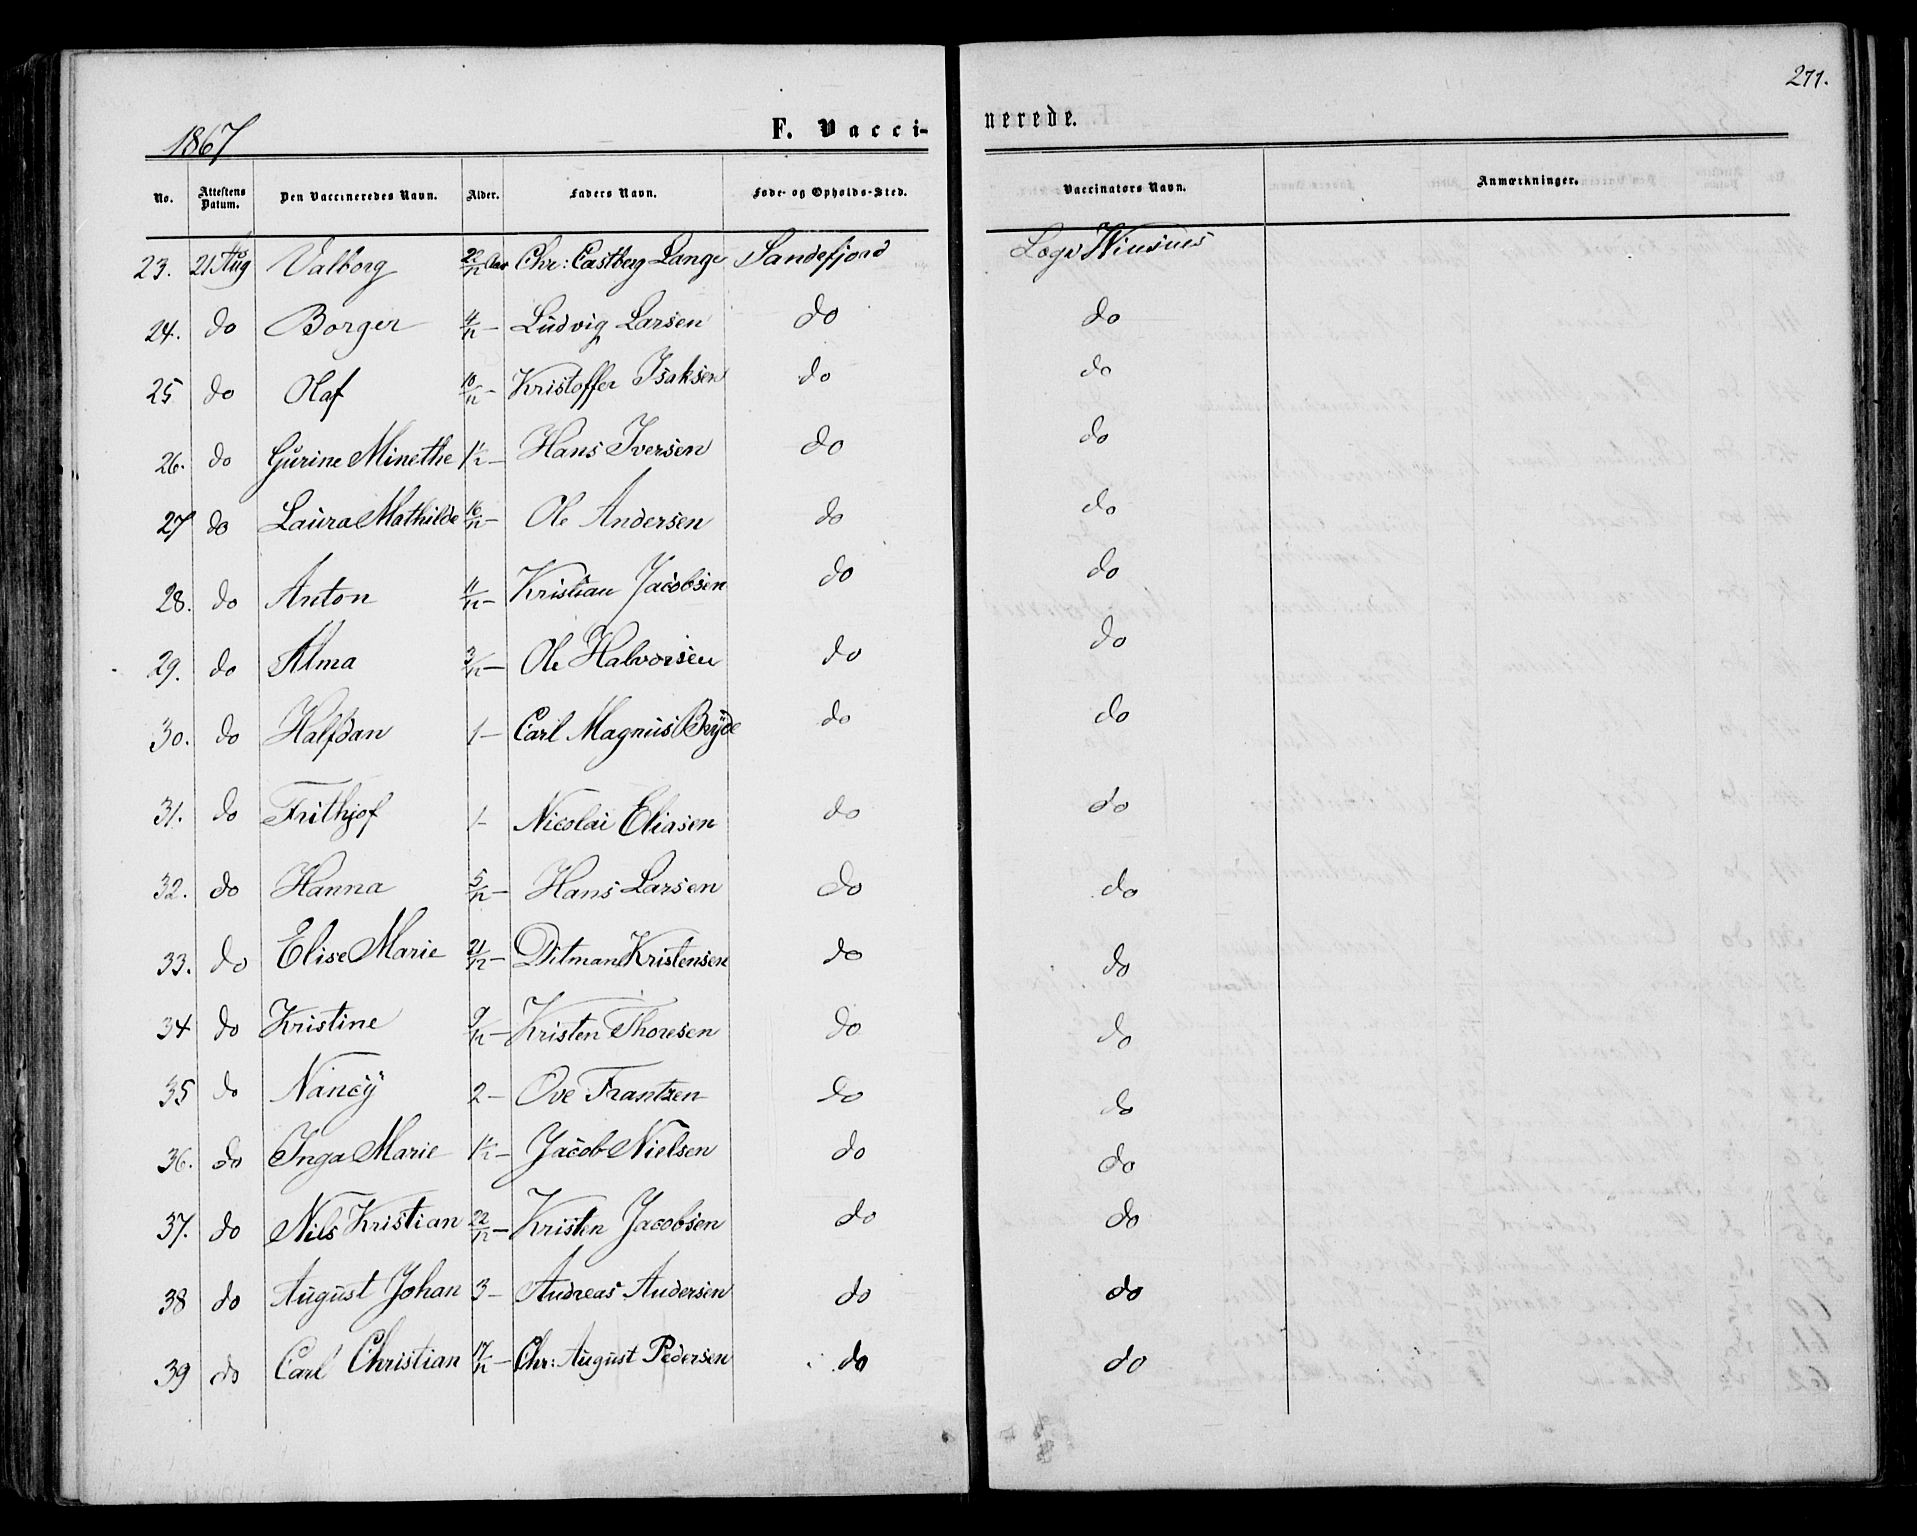 271.
1867 F. Vacci- nerede.
No. Attestens Datum. Den Vaccineredes Navn. Alder. Faders Navn. Føde- og Opholds-Sted. Vaccinators Navn. Anmærkninger.
23. 21 Aug Valborg 22/12 Aar Chr: Castberg Lange Sandefjord Læge
24. do Borger 4/12 — Ludvig Larsen do do
25 do Olaf 10/12 — Kristoffer Isaksen do do
26. do Gurine Minethe 1½ — Hans Iversen do do
27 do Laura Mathilde 16/12 — Ole Andersen do do
28. do Anton 11/12 — Kristian Jacobsen do do
29. do Alma 3/12 — Ole Halvorsen do do
30. do Halfdan 1 — Carl Magnus Bryde do do
31. do Frithjof 1 — Nicolai Eliasen do do
32. do Hanna 5/12 — Hans Larsen do do
33. do Elise Marie 21/12 — Ditman Kristensen do do
34 do Kristine 9/12 — Kristen Thoresen do do
35 do Nancy 2 — Ove Frantzen do do
36. do Inga Marie 1½ — Jacob Nielsen do do
37. do Nils Kristian 22/12 — Kristen Jacobsen do do
38 do August Johan 3 — Andreas Andersen do do
39 do Carl Christian 17/12 — Chr: August Pedersen do do